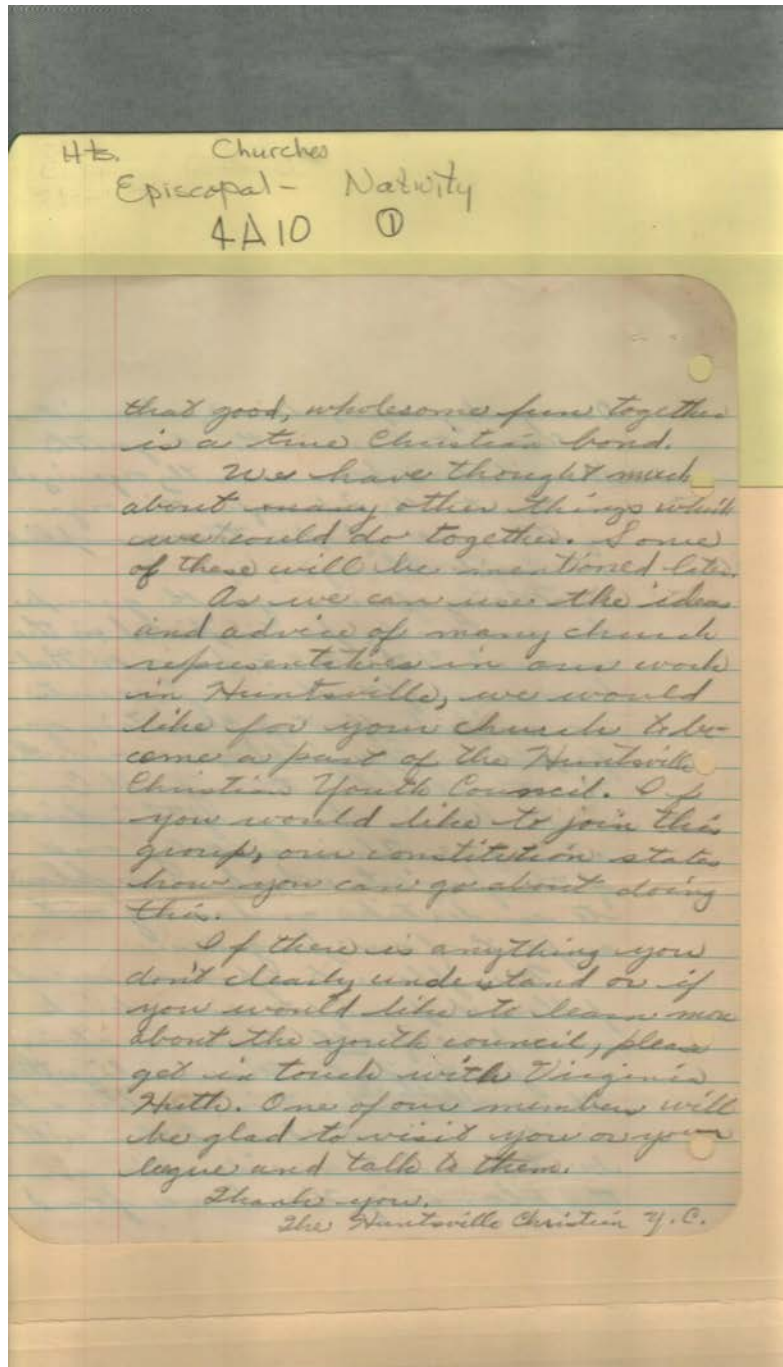 Hts. Churches
Episcopal - Nativity
4A10 ①
that good, wholesome fun together
is a true Christian bond.
We have thought much
about many other things which
we could do together. Some
of these will be mentioned later.
As we can use the ideas
and advice of many church
representatives in our work
in Huntsville, we would
like for your church to be-
come a part of the Huntsville
Christian Youth Council. If
you would like to join this
group, our constitution states
how you can go about doing
this.
If there is anything you
don't clearly understand or if
you would like to learn more
about the youth council, please
get in touch with Virginia
Huth. One of our members will
be glad to visit you or your
legue and talk to them.
Thank you.
The Huntsville Christian Y.C.